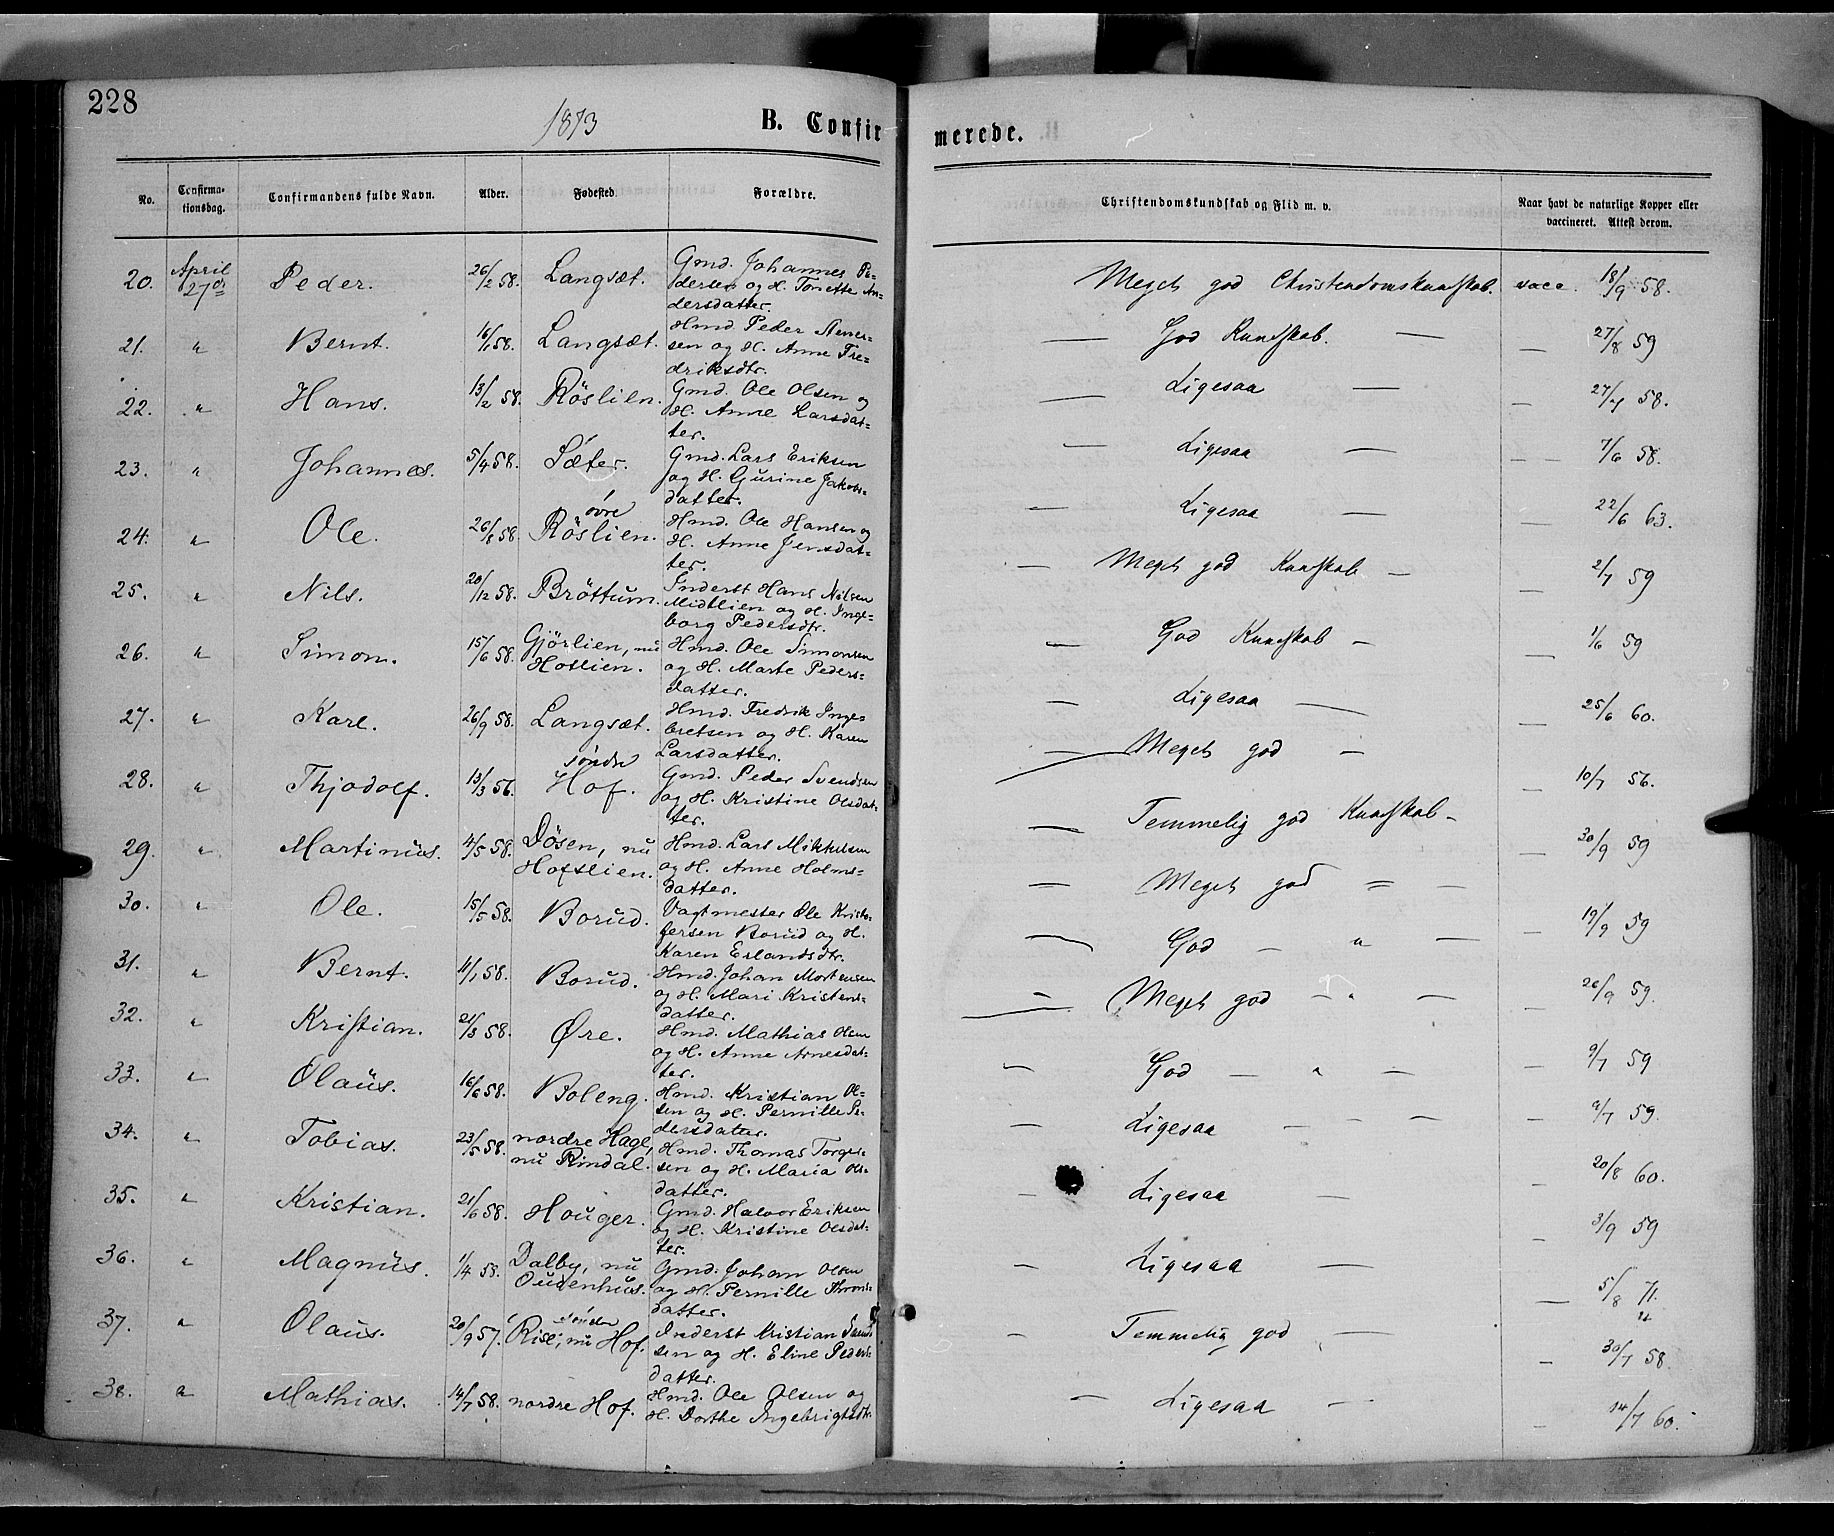 228
1873
B. Confirmerede.
No. Confirmationsdag. Confirmandens fulde Navn. Alder. Fødested. Forældre. Christendomskundskab og Flid m. v. Naar havt de naturlige Kopper eller vaccineret. Attest derom.
20. April 27de Peder. 26/2 58. Langsæt. Gmd. Johannes Pedersen og H. Tonette Andersdatter. Meget god Christendomskundskab. vacc. 18/9 58.
21. " Bernt. 16/1 58. Langsæt. Hmd. Peder Arnersen og H. Anne Fredriksdtr. — God Kundskab. — — 27/8 59
22. " Hans. 13/2 58. Röslien. Gmd. Ole Olsen og H. Anne Larsdatter. — Ligesaa — — 27/7 58.
23. " Johannes. 5/4 58. Sæter. Gmd. Lars Eriksen og H. Gurine Jakobsdatter. — Ligesaa — — 7/6 58.
24. " Ole. 26/8 58. øvre Röslien. Hmd. Ole Hansen og H. Anne Jensdatter. — Ligesaa — — 22/6 63.
25. " Nils. 20/12 58. Bröttum. Inderst Hans Nilsen Midtlien og H. Ingeborg Pedersdtr. — Meget god Kundskab — — 2/7 59
26. " Simon. 15/6 58. Gjørlien, nu Hoflien. Hmd. Ole Simonsen og H. Marte Pedersdatter. — God Kundskab — — 1/6 59
27. " Karl. 26/9 58. Langsæt. Hmd. Fredrik Ingebretsen og H. Karen Larsdatter. — Ligesaa — — 25/6 60.
28. " Thjodolf. 13/3 56. søndre Hof. Gmd. Peder Svendsen og H. Kristine Olsdatter. — Meget god — — 10/7 56.
29. " Martinus. 4/5 58. Dösen, nu Hofslien. Hmd. Lars Mikkelsen og H. Anne Holmsdatter. — Temmelig god Kundskab — — 30/9 59
30. " Ole. 15/5 58. Borud. Vagtmester Ole Kristofersen Borud og H. Karen Erlandsdtr. — Meget god = — — 19/9 59
31. " Bernt. 11/1 58. Borud. Hmd. Johan Mortensen og H. Mari Kristensdatter. — God — " — — 26/9 59.
32. " Kristian. 21/3 58. Øre. Hmd. Mathias Olsen og H. Anne Arnesdatter. — Meget god — " — — 9/7 59
33. " Olaus. 16/6 58. Boleng. Hmd. Kristian Olsen og H. Pernille Pedersdatter. — God — " — — 9/7 59.
34. " Tobias. 23/5 58. nordre Hage, nu Rindal. Hmd. Thomas Torgersen og H. Maria Olsdatter. — Ligesaa — — 20/8 60.
35. " Kristian. 21/6 58. Houger. Gmd. Halvor Eriksen og H. Kristine Olsdatter. — Ligesaa — — 3/9 59
36. " Magnus. 1/4 58. Dalby, nu Oudenhus. Gmd. Johan Olsen og H. Pernille Thronsdatter. — Ligesaa — — 5/8 71.
37. " Olaus. 20/9 57. Risl, nu søndre Hof. Inderst Kristian Svendsen og H. Eline Pedersdatter. — Temmelig god — — 30/7 58.
38. " Mathias. 14/7 58. nordre Hof. Hmd. Ole Olsen og H. Dorthe Ingebrigtsdtr. — Ligesaa — — 14/7 60.